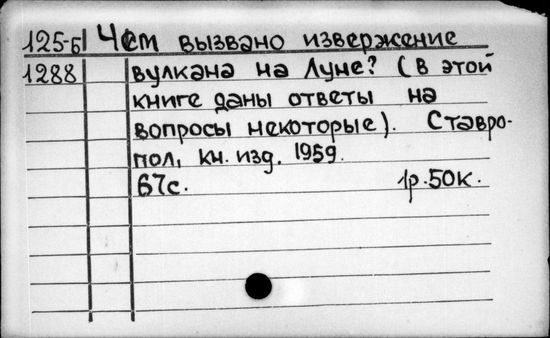 125-б Чем вызвано извержение
1288 вулкана на Луне? (в этой
книге даны ответы на
вопросы некоторые). Ставро-
пол, кн. изд. 1959.
67с. 1р.50к.